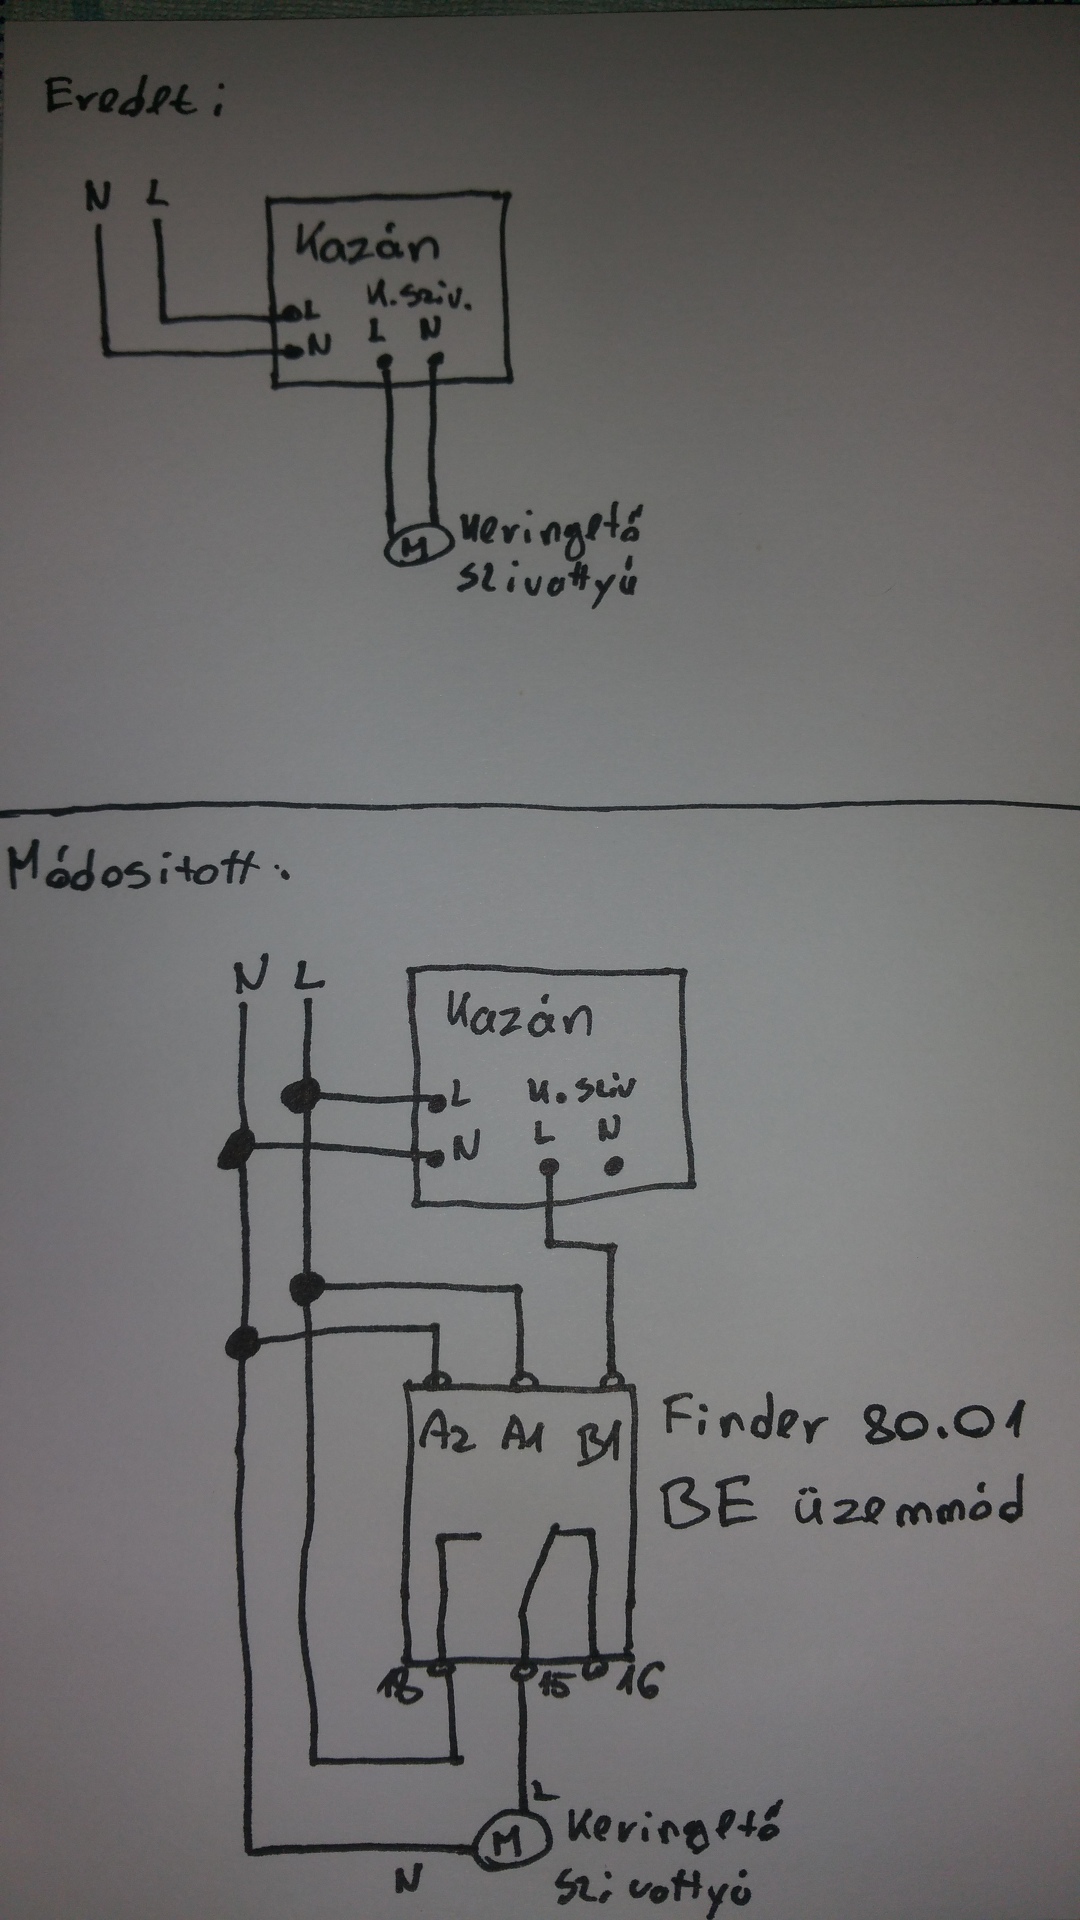 Eredeti
N L
Kazán
K.sziv.
L
L N
N
M
Keringető
szivattyú
Módosított:
N L
Kazán
L
K.sziv
N
L N
A2 A1 B1
Finder 80.01
BE üzemmód
18 15 16
L
M
Keringető
N
szivattyú